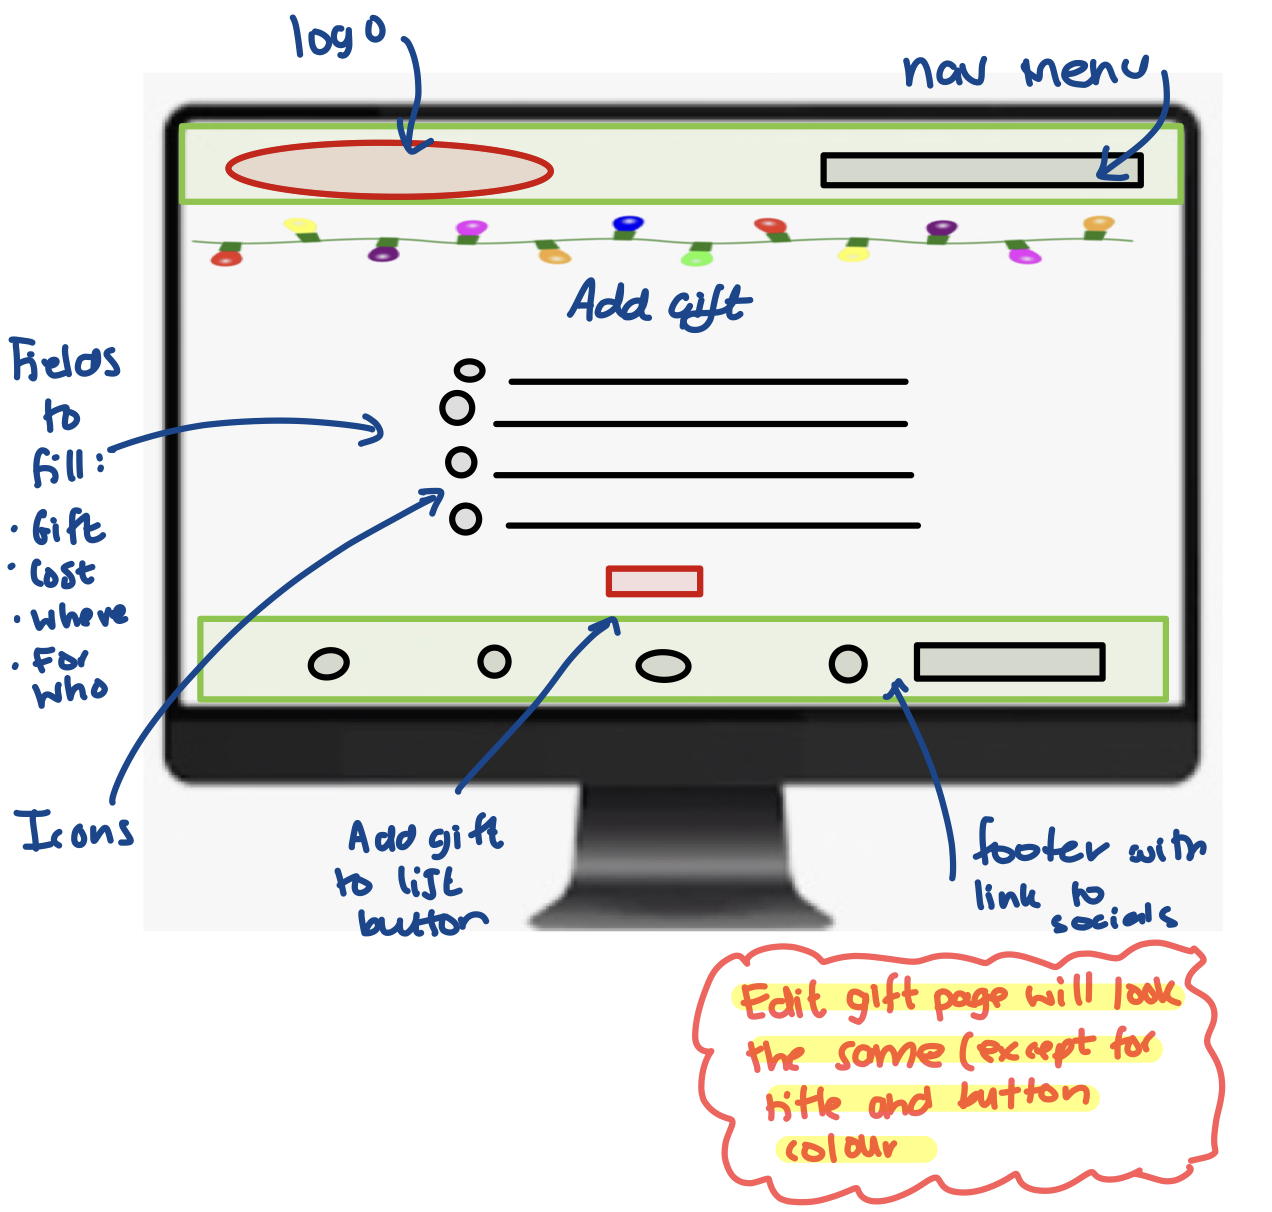 logo
nav menu
Add gift
Fields
to
fill:
· Gift
· Cost
· where
· For
who
Icons
Add gift
to list
button
footer with
link to
socials
Edit gift page will look
the same (except for
title and button
colour